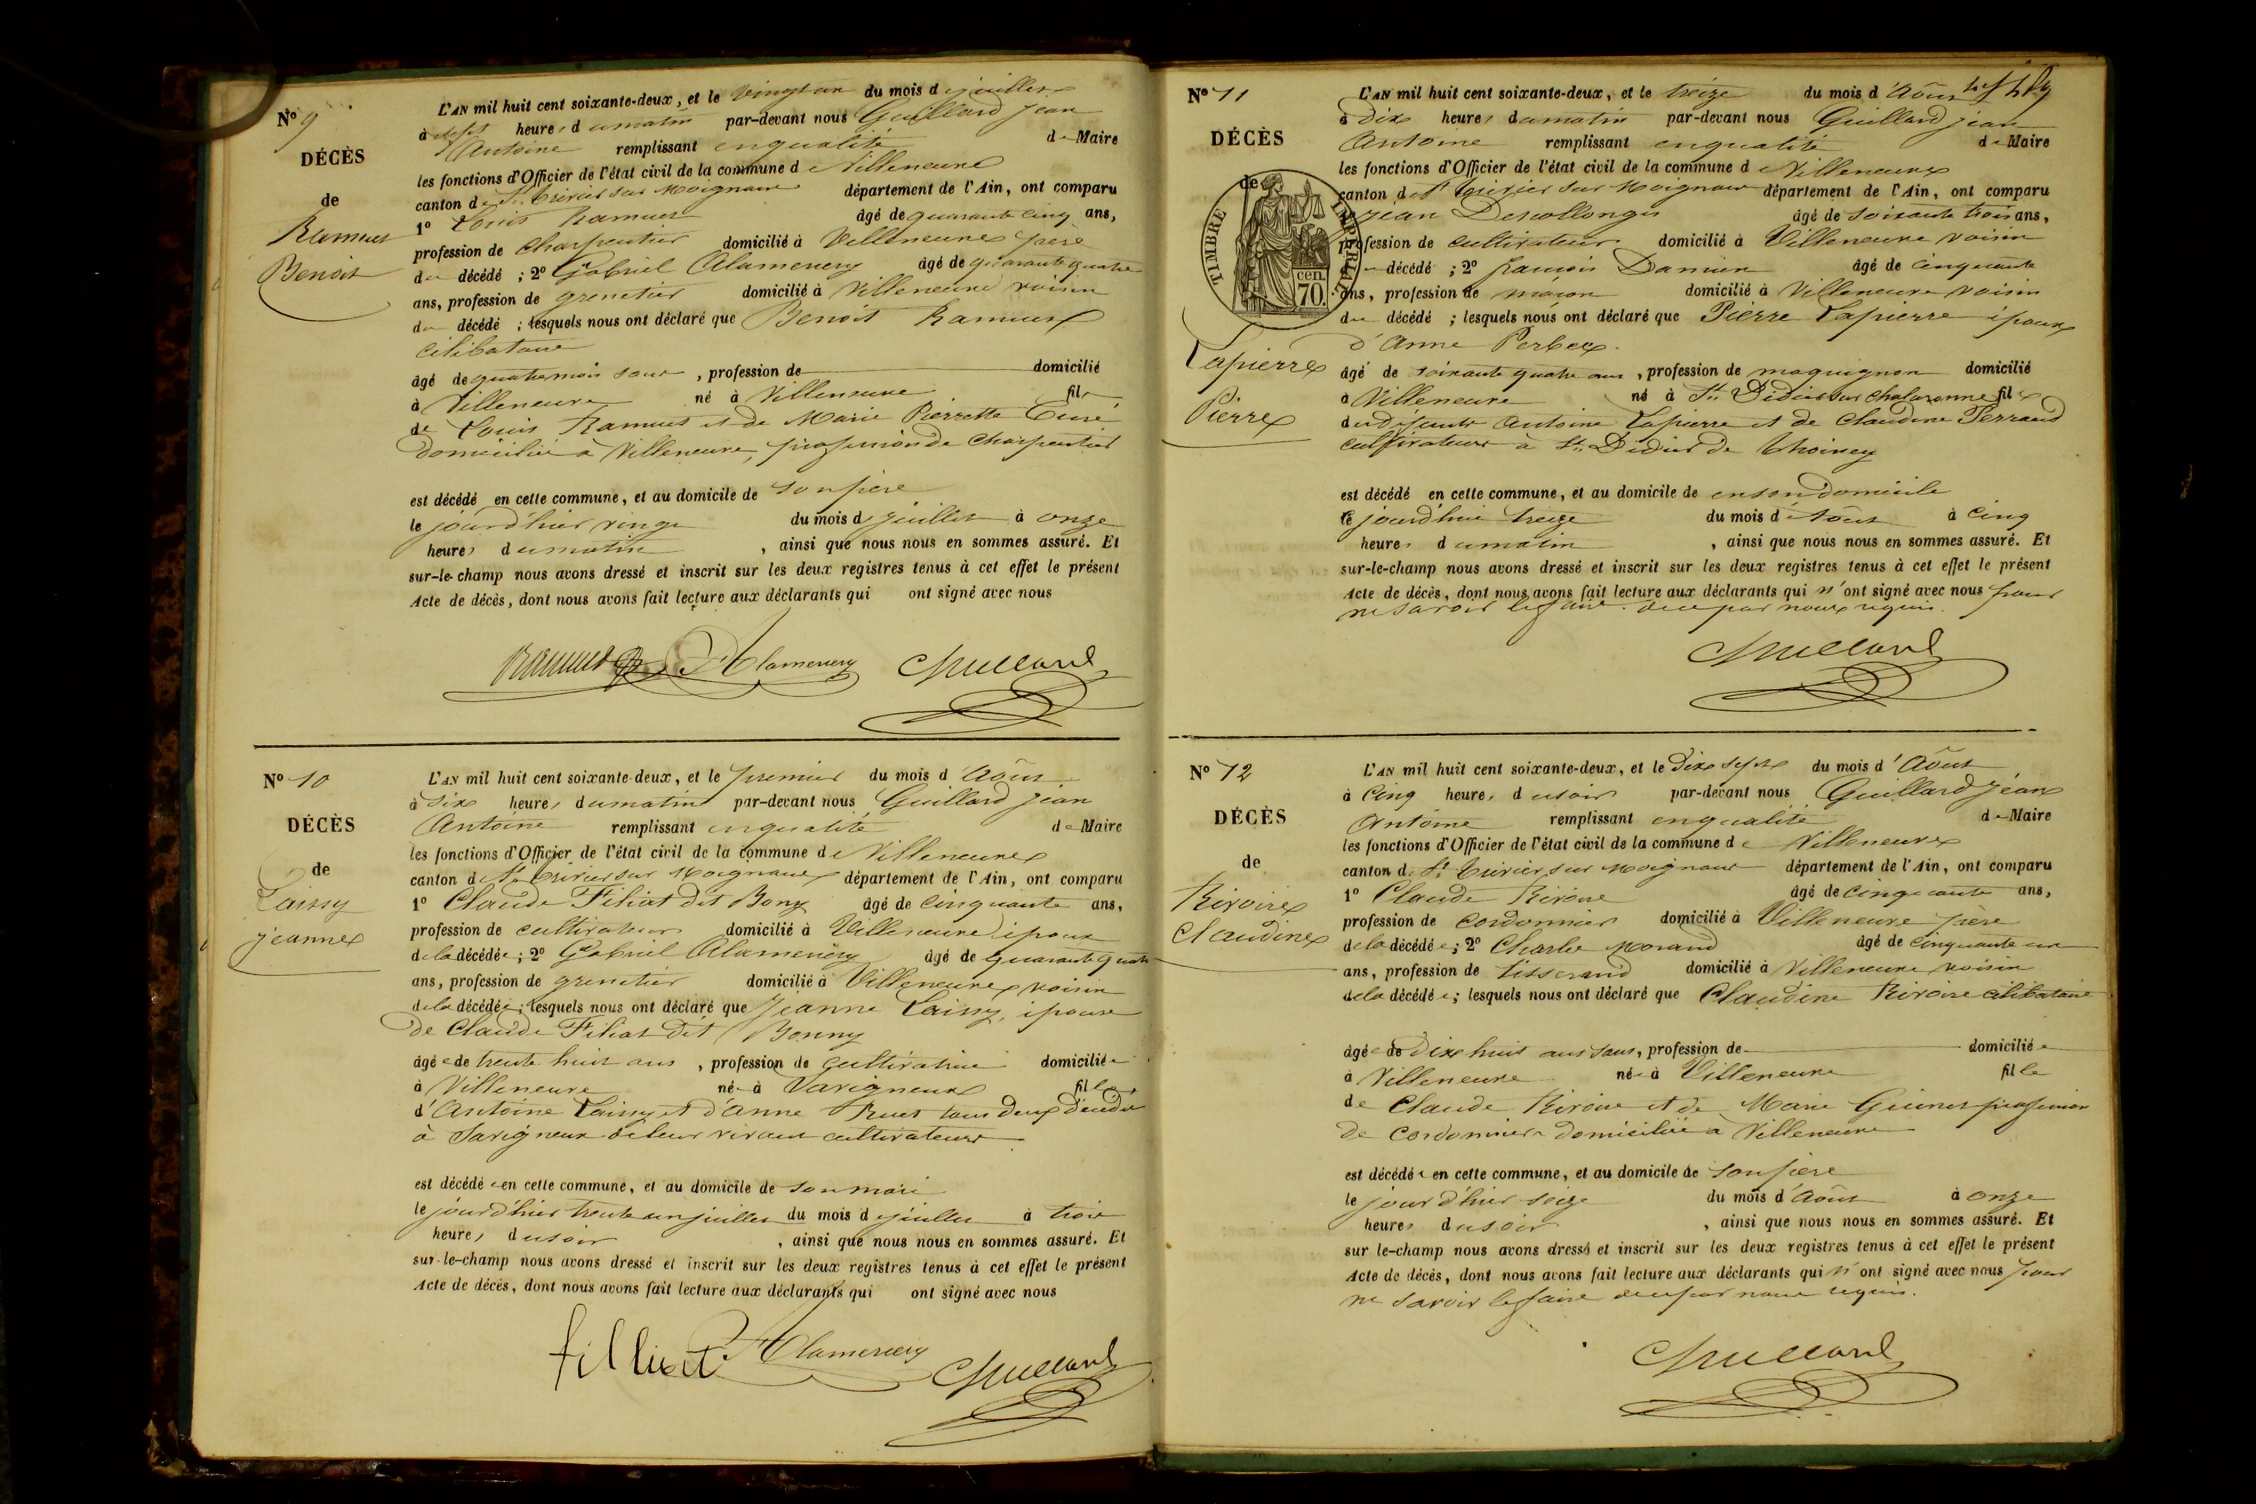 N° 9
DÉCÈS
de
Ramuet
Benoit
L'AN mil huit cent soixante-deux, et le vingt un du mois de juillet
à sept heures du matin par-devant nous Guillard jean
Antoine remplissant en qualité de Maire
les fonctions d'Officier de l'état civil de la commune de Villeneuve
canton de St Trivier sur Moignans département de l'Ain, ont comparu
1° Louis Ramuet âgé de quarante cinq ans,
profession de charpentier domicilié à Villeneuve père
du décédé ; 2° Gabriel Alamercery âgé de quarante quatre
ans, profession de grenetier domicilié à Villeneuve voisin
du décédé ; lesquels nous ont déclaré que Benoit Ramuet
célibataire
âgé de quatre mois , profession de domicilié
à Villeneuve né à Villeneuve fils
de Louis Ramuet et de Marie Pierrette
domiciliés à Villeneuve, profession de charpentier
est décédé en cette commune, et au domicile de son père
le jourd'hier vingt du mois de juillet à onze
heures du matin , ainsi que nous nous en sommes assuré. Et
sur-le-champ nous avons dressé et inscrit sur les deux registres tenus à cet effet le présent
Acte de décès, dont nous avons fait lecture aux déclarants qui ont signé avec nous
Ramuet Alamercery Guillard
N° 10
DÉCÈS
de
Laissy
jeanne
L'AN mil huit cent soixante-deux, et le premier du mois d'Août
à six heures du matin par-devant nous Guillard jean
Antoine remplissant en qualité de Maire
les fonctions d'Officier de l'état civil de la commune de Villeneuve
canton de St Trivier sur Moignans département de l'Ain, ont comparu
1° Claude Filiat dit Bony âgé de cinquante ans,
profession de cultivateur domicilié à Villeneuve époux
de la décédée ; 2° Gabriel Alamercery âgé de quarante quatre
ans, profession de grenetier domicilié à Villeneuve voisin
de la décédée ; lesquels nous ont déclaré que Jeanne Laissy, épouse
de Claude Filiat dit Bonny
âgée de trente huit ans , profession de cultivatrice domiciliée
à Villeneuve née à Savigneux fille
d'Antoine Laissy et d'anne Ruet tous deux décédés
à Savigneux de leur vivant cultivateurs
est décédée en cette commune, et au domicile de son mari
le jourd'hier trente un juillet du mois de juillet à trois
heures du soir , ainsi que nous nous en sommes assuré. Et
sur-le-champ nous avons dressé et inscrit sur les deux registres tenus à cet effet le présent
Acte de décès, dont nous avons fait lecture aux déclarants qui ont signé avec nous
filliat Alamercery Guillard
N° 11
DÉCÈS
de
TIMBRE IMPÉRIAL
70 cen.
Lapierre
Pierre
L'AN mil huit cent soixante-deux, et le treize du mois d'Août
à dix heures du matin par-devant nous Guillard jean
Antoine remplissant en qualité de Maire
les fonctions d'Officier de l'état civil de la commune de Villeneuve
canton de St Trivier sur Moignans département de l'Ain, ont comparu
jean Descollonges âgé de soixante trois ans,
profession de cultivateur domicilié à Villeneuve voisin
du décédé ; 2° françois Damien âgé de cinquante
ans, profession de maçon domicilié à Villeneuve voisin
du décédé ; lesquels nous ont déclaré que Pierre Lapierre époux
d'Anne Perbex
âgé de soixante quatre ans , profession de maquignon domicilié
à Villeneuve né à St Didier sur Chalaronne fils
du défunt Antoine Lapierre et de Claudine Perraud
cultivateurs à St Didier de Thoissey
est décédé en cette commune, et au domicile de en son domicile
le jourd'hui treize du mois d'Août à cinq
heures du matin , ainsi que nous nous en sommes assuré. Et
sur-le-champ nous avons dressé et inscrit sur les deux registres tenus à cet effet le présent
Acte de décès, dont nous avons fait lecture aux déclarants qui n'ont signé avec nous pour
ne savoir le faire de ce par nous requis.
Guillard
N° 12
DÉCÈS
de
Rivoire
Claudine
L'AN mil huit cent soixante-deux, et le dix sept du mois d'Août
à cinq heures du soir par-devant nous Guillard jean
Antoine remplissant en qualité de Maire
les fonctions d'Officier de l'état civil de la commune de Villeneuve
canton de St Trivier sur Moignans département de l'Ain, ont comparu
1° Claude Rivoire âgé de cinquante ans,
profession de cordonnier domicilié à Villeneuve père
de la décédée ; 2° Charles Morand âgé de cinquante un
ans, profession de tisserand domicilié à Villeneuve voisin
de la décédée ; lesquels nous ont déclaré que Claudine Rivoire célibataire
âgée de dix huit ans sans, profession de domiciliée
à Villeneuve née à Villeneuve fille
de Claude Rivoire et de Marie profession
de cordonnier domiciliés à Villeneuve
est décédée en cette commune, et au domicile de son père
le jour d'hier seize du mois d'Août à onze
heures du soir , ainsi que nous nous en sommes assuré. Et
sur le-champ nous avons dressé et inscrit sur les deux registres tenus à cet effet le présent
Acte de décès, dont nous avons fait lecture aux déclarants qui n'ont signé avec nous pour
ne savoir le faire de ce par nous requis.
Guillard